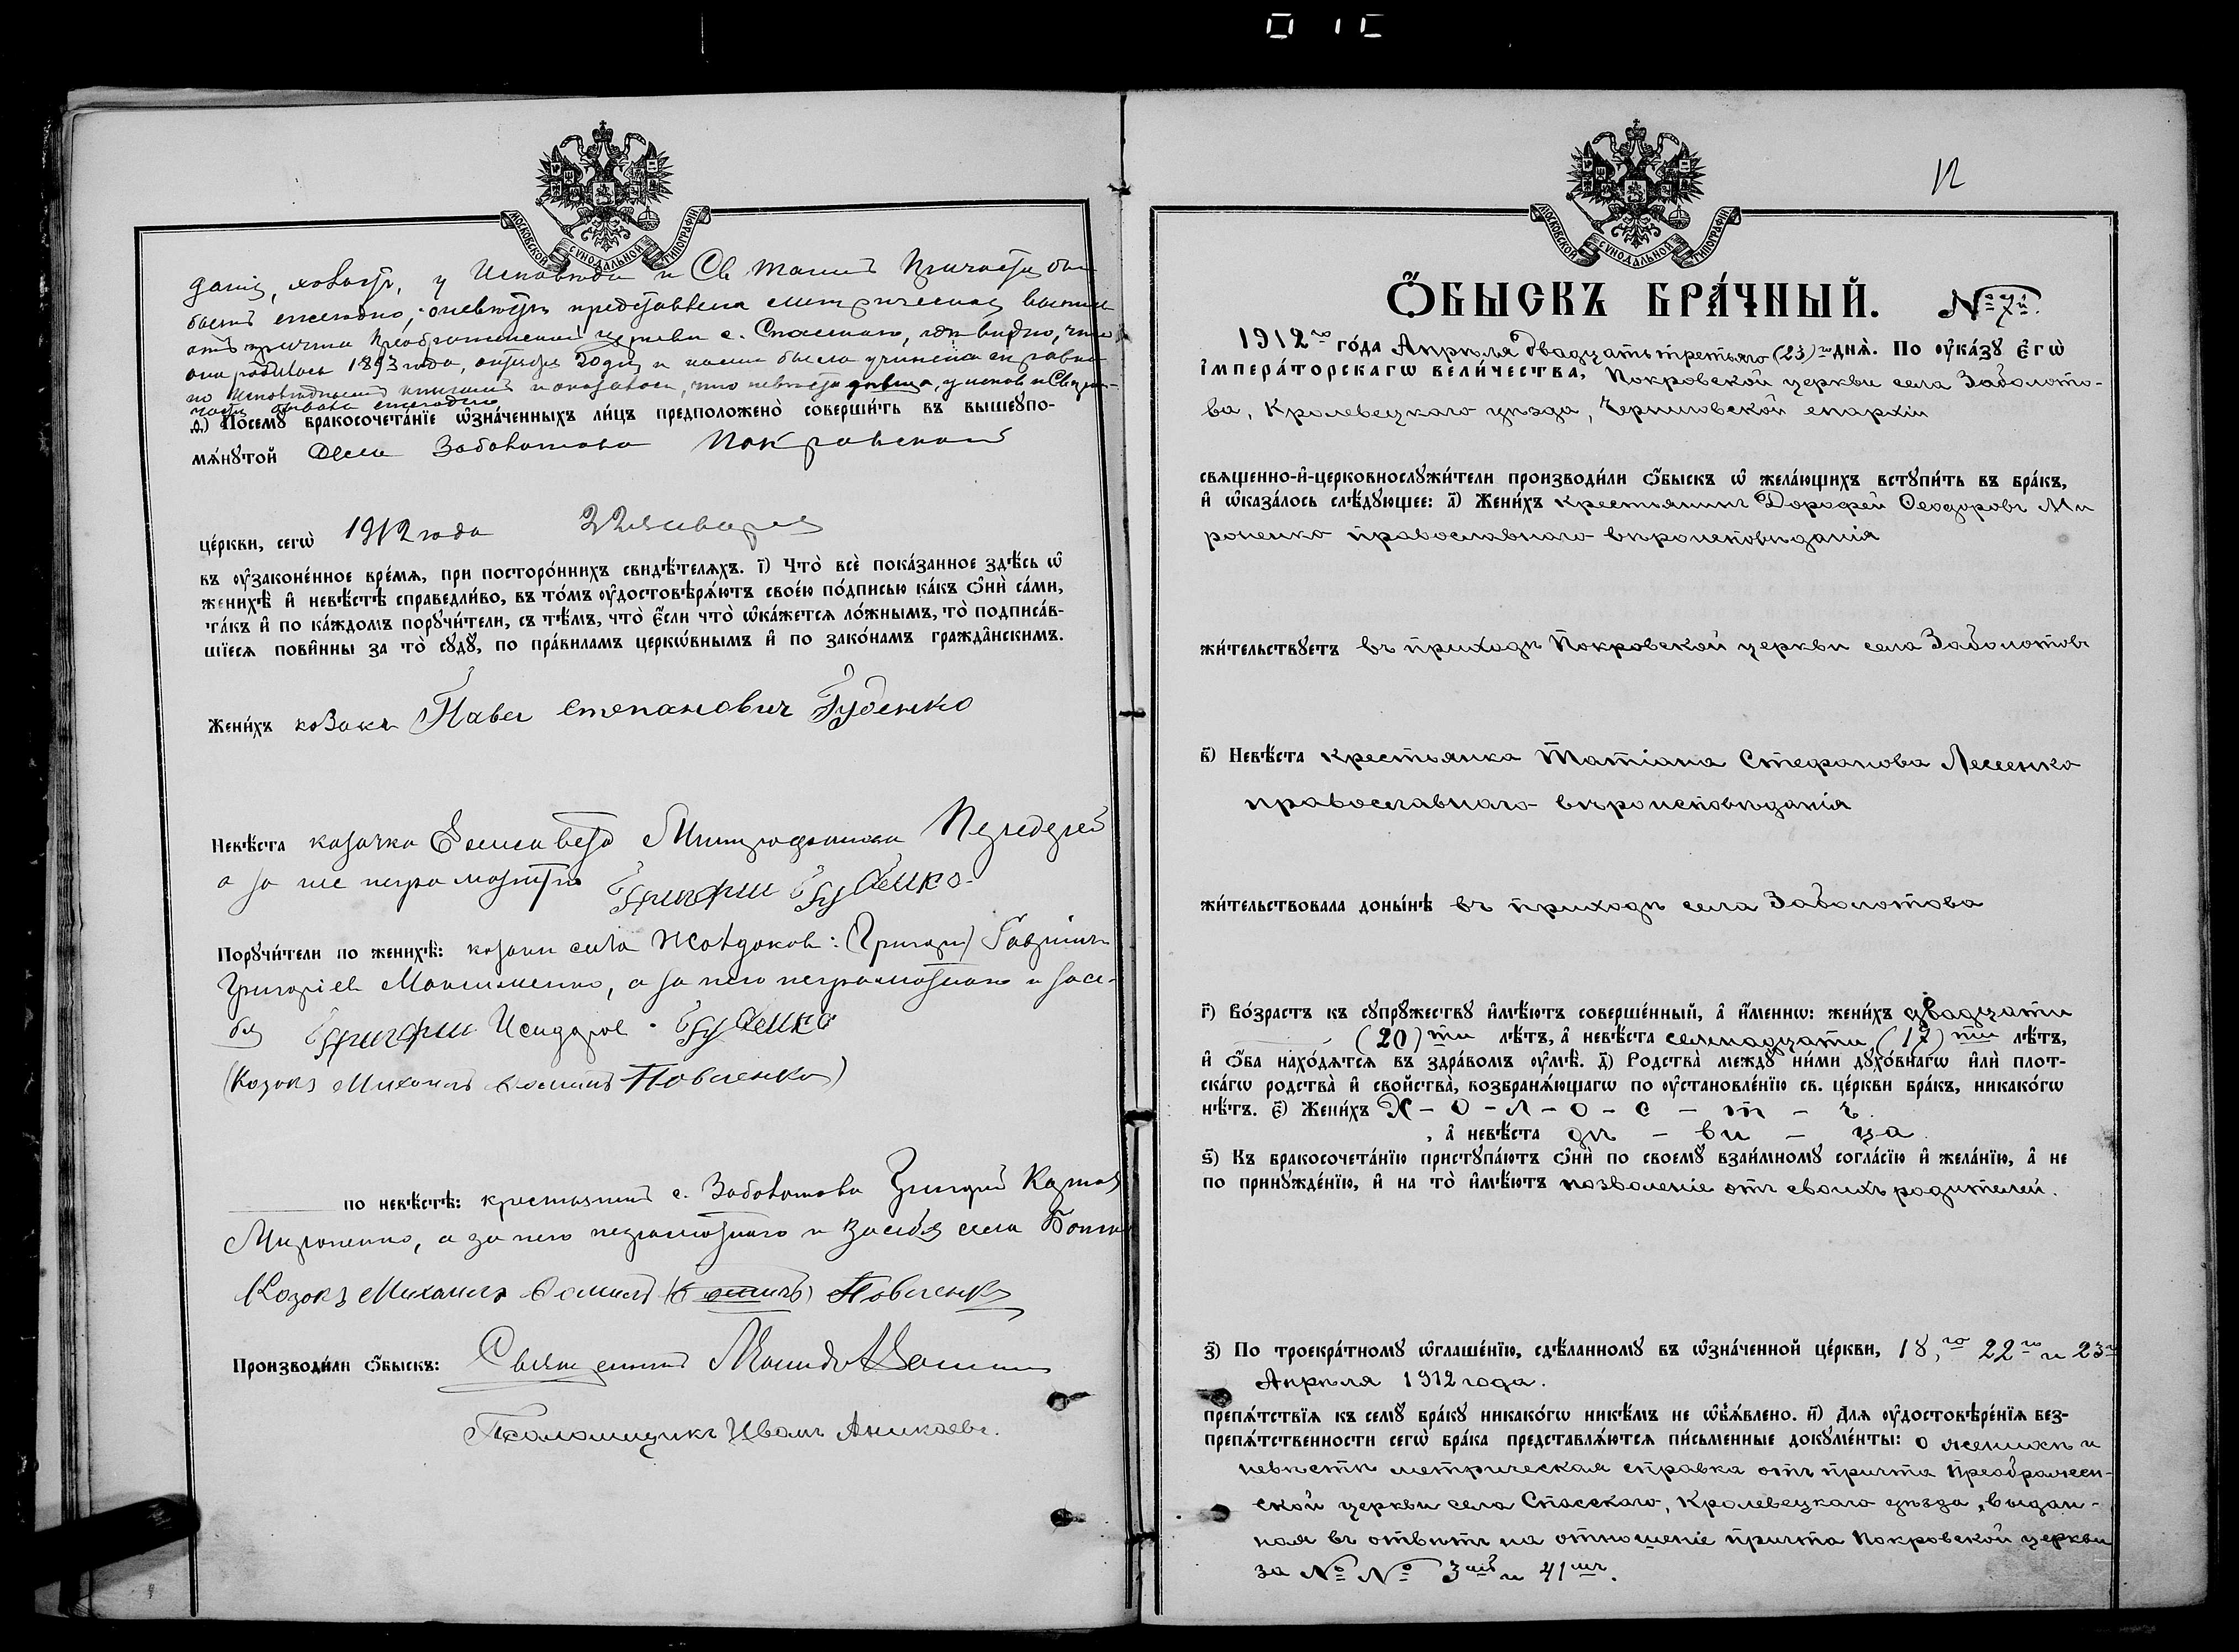 МОСКОВСКОЙ СѴНОДАЛЬНОЙ ТИПОГРАФІИ
даніѧ, холостъ, у Исповѣди и Св Таинъ Причастія бы
ваетъ ежегодно, о невѣстѣ представлена метрическая выпись
отъ причта Преображенской церкви с. Спаскаго, гдѣ видно, что
она родилась 1893 года, октября 20 дня и нами была учинена справка
по исповѣднымъ книгамъ и оказалось, что невѣста дѣвица, у испов и Св при-
частія бывала ежегодно
д҃.) Посемꙋ̀ бракосочета́нїе ѡ҆зна́ченныхъ ли́цъ предположено̀ соверши́ть въ вышеꙋпо-
мѧ́нꙋтой Села Заболотова Покровской
це́ркви, сегѡ̀ 1912 года 22 января
въ ᲂу҆законе́нное вре́мѧ, при посторо́ннихъ свидѣ́телѧхъ. і҃) Что̀ всѐ пока́занное здѣ́сь ѡ҆
женихѣ̀ и҆ невѣ́стѣ справедли́во, въ то́мъ ᲂу҆достовѣрѧ́ютъ свое́ю по́дписью ка́къ ѻ҆нѝ са́ми,
та́къ и҆ по ка́ждомъ порꙋчи́тели, съ тѣ́мъ, что̀ є҆́сли что̀ ѡ҆ка́жетсѧ ло́жнымъ, то̀ подписа́в-
шїесѧ пови́нны за то̀ сꙋдꙋ̀, по пра́виламъ церкѡ́внымъ и҆ по зако́намъ гражда̂нскимъ.
Жени́хъ козакъ Павел Степановичъ Губенко
Невѣ́ста казачка Елисавета Митрофанова
а за нее неграмотную Григорий Губенко
Порꙋчи́тели по женихѣ̀: козаки села Жолдаков: (Григорій) Гавріилъ
Григоріев Максименко, а за него неграмотнаго и за се-
бя Григорий Исидоров Губенко
(Козакъ Михаилъ Фоминъ)
по невѣ́стѣ: крестьянинъ с. Заболотова Григорій
Мироненко, а за него неграмотнаго и за себя села
Козакъ Михаилъ Фоминъ
Производи́ли ѻ҆́быскъ: Священникъ
Псаломщикъ Иванъ Аникаевъ.
МОСКОВСКОЙ СѴНОДАЛЬНОЙ ТИПОГРАФІИ
12
Ѻ҆́БЫСКЪ БРА́ЧНЫЙ. № 7й.
1912го го́да Апрѣля двадцать третьяго (23)го днѧ̀. По ᲂу҆ка́зꙋ Є҆гѡ̀
І҆мпера́торскагѡ вели́чества, Покровской церкви села Заболото-
ва, Кролевецкаго уѣзда, Черниговской епархіи
свѧщенно-и҆-церковнослꙋжи́тели производи́ли ѻ҆́быскъ ѡ҆ жела́ющихъ встꙋпи́ть въ бра́къ,
и҆ ѡ҆каза́лось слѣ́дꙋющее: а҃) Жени́хъ крестьянинъ Дорофей Ѳеодоровъ Ми
роненко православнаго вѣроисповѣданія
жи́тельствꙋетъ въ приходѣ Покровской церкви села Заболотовъ
в҃) Невѣ́ста крестьянка Татіана Стефанова Лещенко
православнаго вѣроисповѣданія
жи́тельствовала донынѣ въ приходѣ села Заболотова
г҃) Во́зрастъ къ сꙋпрꙋ́жествꙋ и҆мѣ́ютъ соверше́нный, а҆ и҆́меннѡ: жени́хъ двадцати
(20)ти лѣ́тъ, а҆ невѣ́ста семнадцати (17)ти лѣ́тъ,
и҆ ѻ҆́ба нахо́дѧтсѧ въ здра́вомъ ᲂу҆мѣ̀. д҃) Родства̀ междꙋ̀ ни́ми дꙋхо́внагѡ и҆лѝ плот-
ска́гѡ родства̀ и҆ сво́йства, возбранѧ́ющагѡ по ᲂу҆становле́нїю св. це́ркви бра́къ, никако́гѡ
нѣ́тъ. є҃) Жени́хъ Х - о - л - о - с - т - ъ.
, а҆ невѣ́ста дѣ - ви - ца.
ѕ҃) Къ бракосочета́нїю пристꙋпа́ютъ ѻ҆нѝ по своемꙋ̀ взаи́мномꙋ согла́сїю и҆ жела́нїю, а҆ не
по принꙋжде́нїю, и҆ на то̀ и҆мѣ́ютъ позволеніе отъ своихъ родителей.
з҃) По троекра́тномꙋ ѡ҆глаше́нїю, сдѣ́ланномꙋ въ ѡ҆зна́ченной це́ркви, 18,го 22го и 23го
Апрѣля 1912 года.
препѧ́тствїѧ къ семꙋ̀ бра́кꙋ никако́гѡ никѣ́мъ не ѡ҆б̾ѧ́влено. и҃) Длѧ ᲂу҆достовѣре́нїѧ без-
препѧ́тственности сегѡ̀ бра́ка представлѧ́ютсѧ пи́сьменные докꙋме́нты: о женихѣ и
невѣстѣ метрическая справка отъ причта Преображен-
ской церкви села Спасскаго, Кролевецкаго уѣзда, выдан-
ная въ отвѣтъ на отношеніе причта Покровской церкви
за №№ 3мъ и 41мъ.